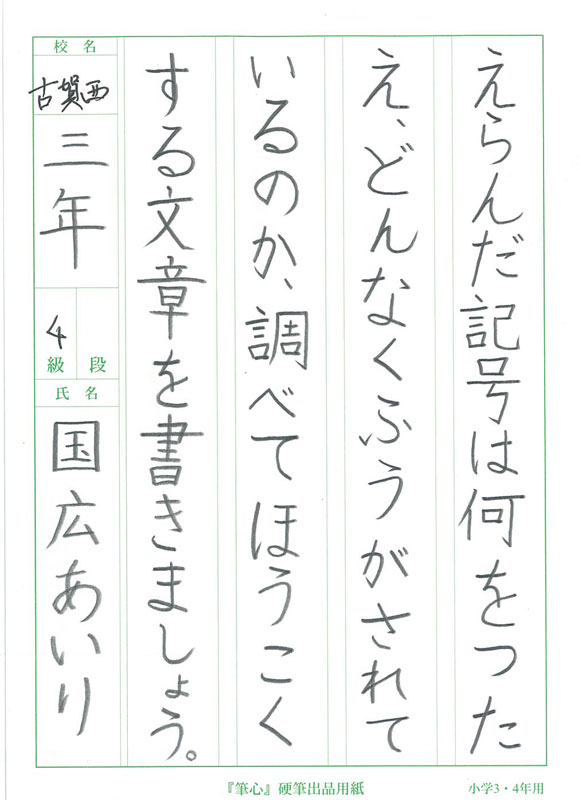 えらんだ記号は何をつた
え、どんなくふうがされて
いるのか、調べてほうこく
する文章を書きましょう。
校名
古賀西
三年
4
級段
氏名
国広あいり
『筆心』硬筆出品用紙
小学3・4年用